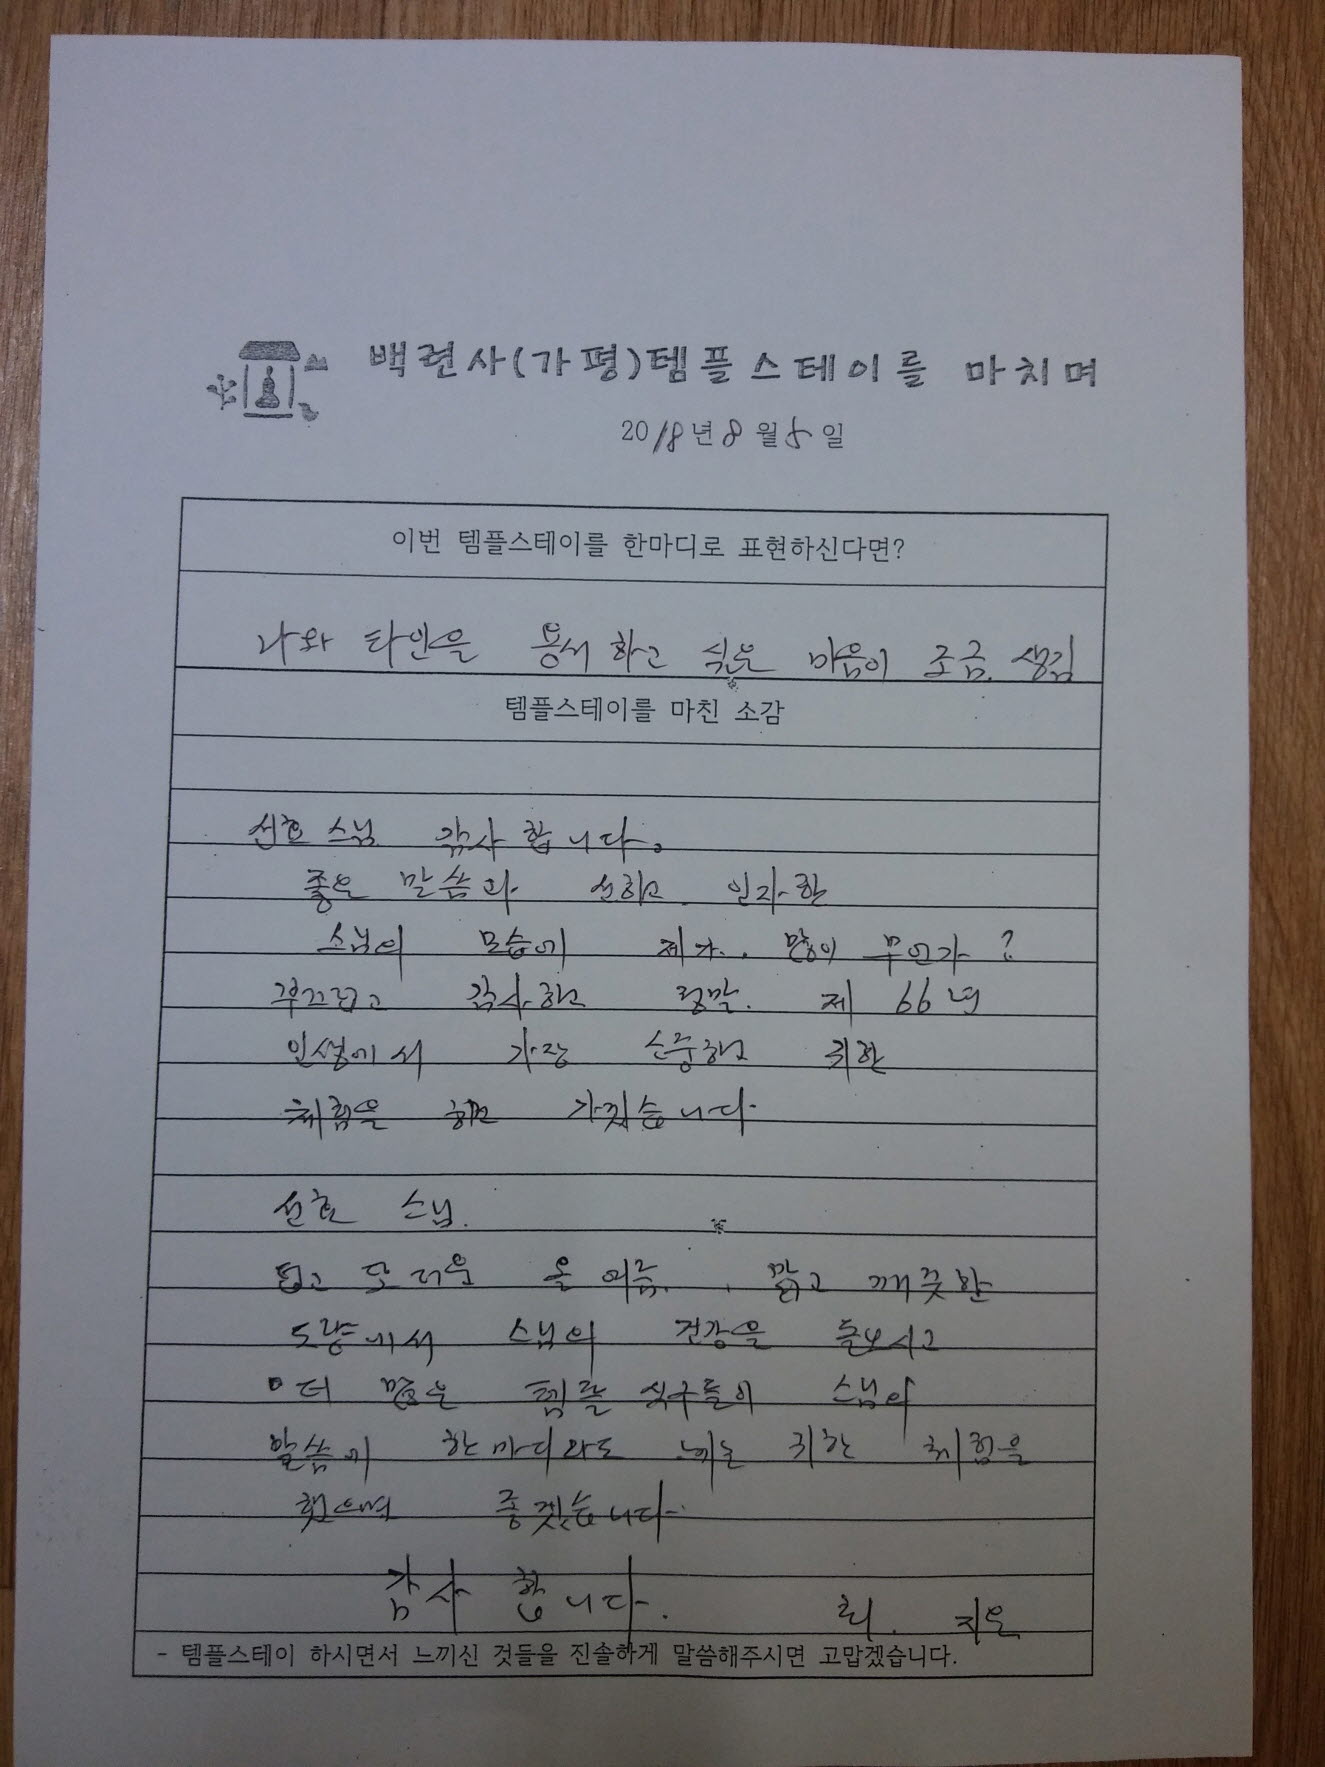 백련사(가평)템플스테이를 마치며
2018년 8월 5일
이번 템플스테이를 한마디로 표현하신다면?
나와 타인을 용서 하고 싶은 마음이 조금. 생김
템플스테이를 마친 소감
선효 스님 감사 합니다.
좋은 말씀과 선하고 인자한
스님의 모습에 제가.. 많이 무언가 ?
부끄럽고 감사하고 정말. 제 66년
인생에서 가장 소중하고 귀한
체험을 하고 가겠습니다.
선효 스님.
덥고 또 더운 올 여름.. 맑고 깨끗한
도량에서 스님의 건강을 돌보시고
더 많은 템플 식구들이 스님의
말씀에 한마디라도 귀한 체험을
했으면 좋겠습니다.
감사 합니다. 최. 지은
- 템플스테이 하시면서 느끼신 것들을 진솔하게 말씀해주시면 고맙겠습니다.